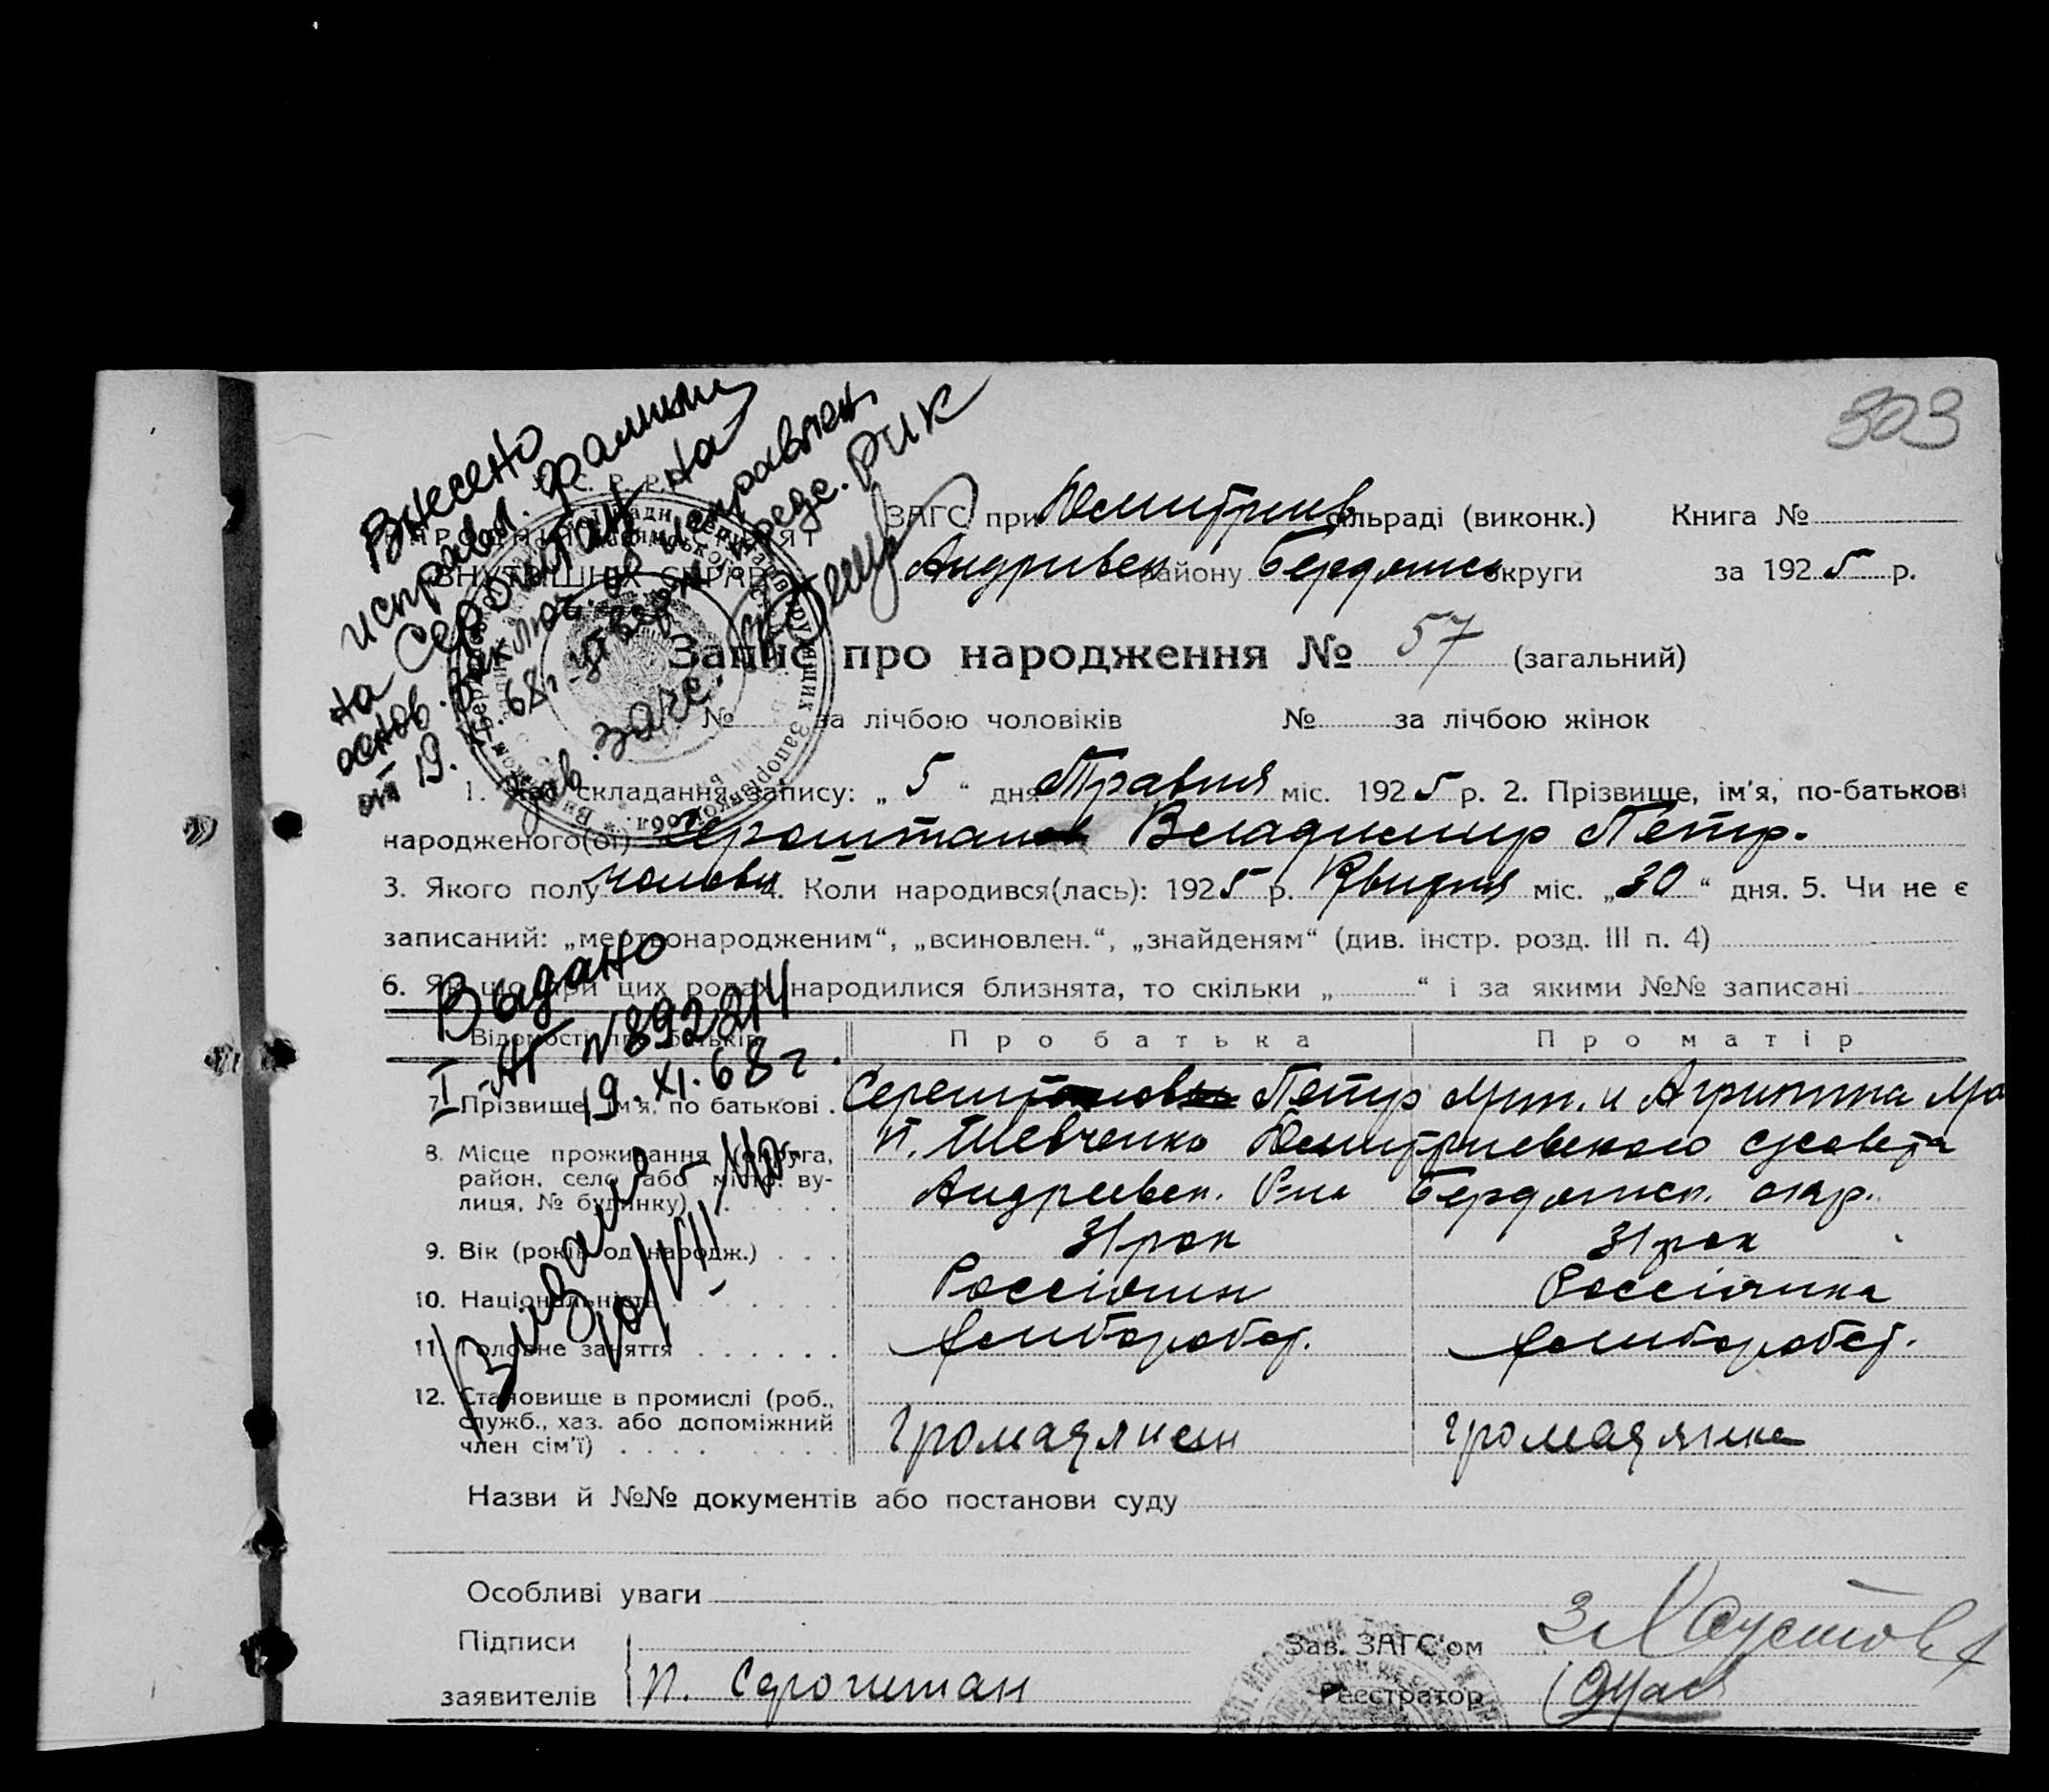 303
Внесено
исправл. фамилии
на Сероштан на
основ. заключ. об исправлен.
от 19. XI. 68 г. утверж Бердс. РИК
Зав. загс.
У. С. Р. Р.
ВНУТРІШНІХ СПРАВ
ЗАГС при Дмитрив сільраді (виконк.) Книга №
Андривск району Бердянск округи за 1925 р.
Запис про народження № 57 (загальний)
№ за лічбою чоловіків № за лічбою жінок
1. складання запису: „ 5 “ дня Травня міс. 1925 р. 2. Прізвище, ім'я, по-батькові
народженого(ої) Сероштан Владимир Петр.
3. Якого полу чоловіч 4. Коли народився(лась): 1925 р. Квитня міс. „30“ дня. 5. Чи не є
записаний: „мертвонародженим“, „всиновлен.“, „знайденям“ (див. інстр. розд. III п. 4)
6. Якщо при цих родах народилися близнята, то скільки „ “ і за якими №№ записані
Выдано
I-АГ №892214
19. XI. 68 г.
Відомості про батьків Про батька Про матір
7. Прізвище, ім'я, по батькові Петр Мит. и Агрипина
8. Місце проживання (округа, район, село або місто, вулиця, № будинку) п. Шевченко Дмитриевского сжовета
Андреевск. Р-на Бердянск. окр.
9. Вік (років од народж.) 31 рок 31 рок
10. Національність Россіянин Россіянка
11. Головне заняття хлибороб. хлибороб.
12. Становище в промислі (роб., служб., хаз. або допоміжний член сім'ї) громадянин громадянка
Назви й №№ документів або постанови суду
Особливі уваги
Підписи
заявителів П. Сероштан
Зав. ЗАГС'ом
Реєстратор